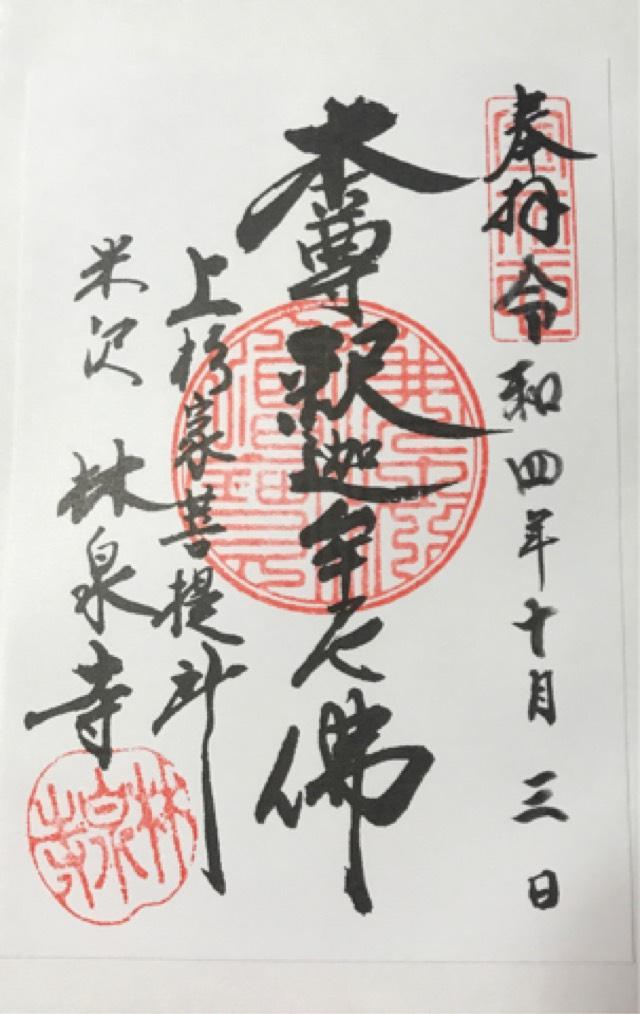 奉拝令和四年十月三日
本尊釈迦牟尼佛
上杉家菩提所
米沢林泉寺
林泉寺